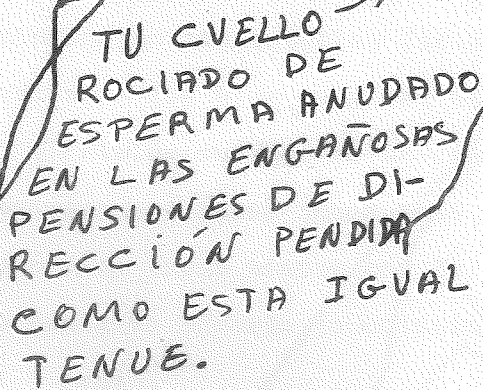 TU CUELLO
ROCIADO DE
ESPERMA ANUDADO
EN LAS ENGAÑOSAS
PENSIONES DE DI-
RECCIÓN PENDIDA
COMO ESTA IGUAL
TENUE.